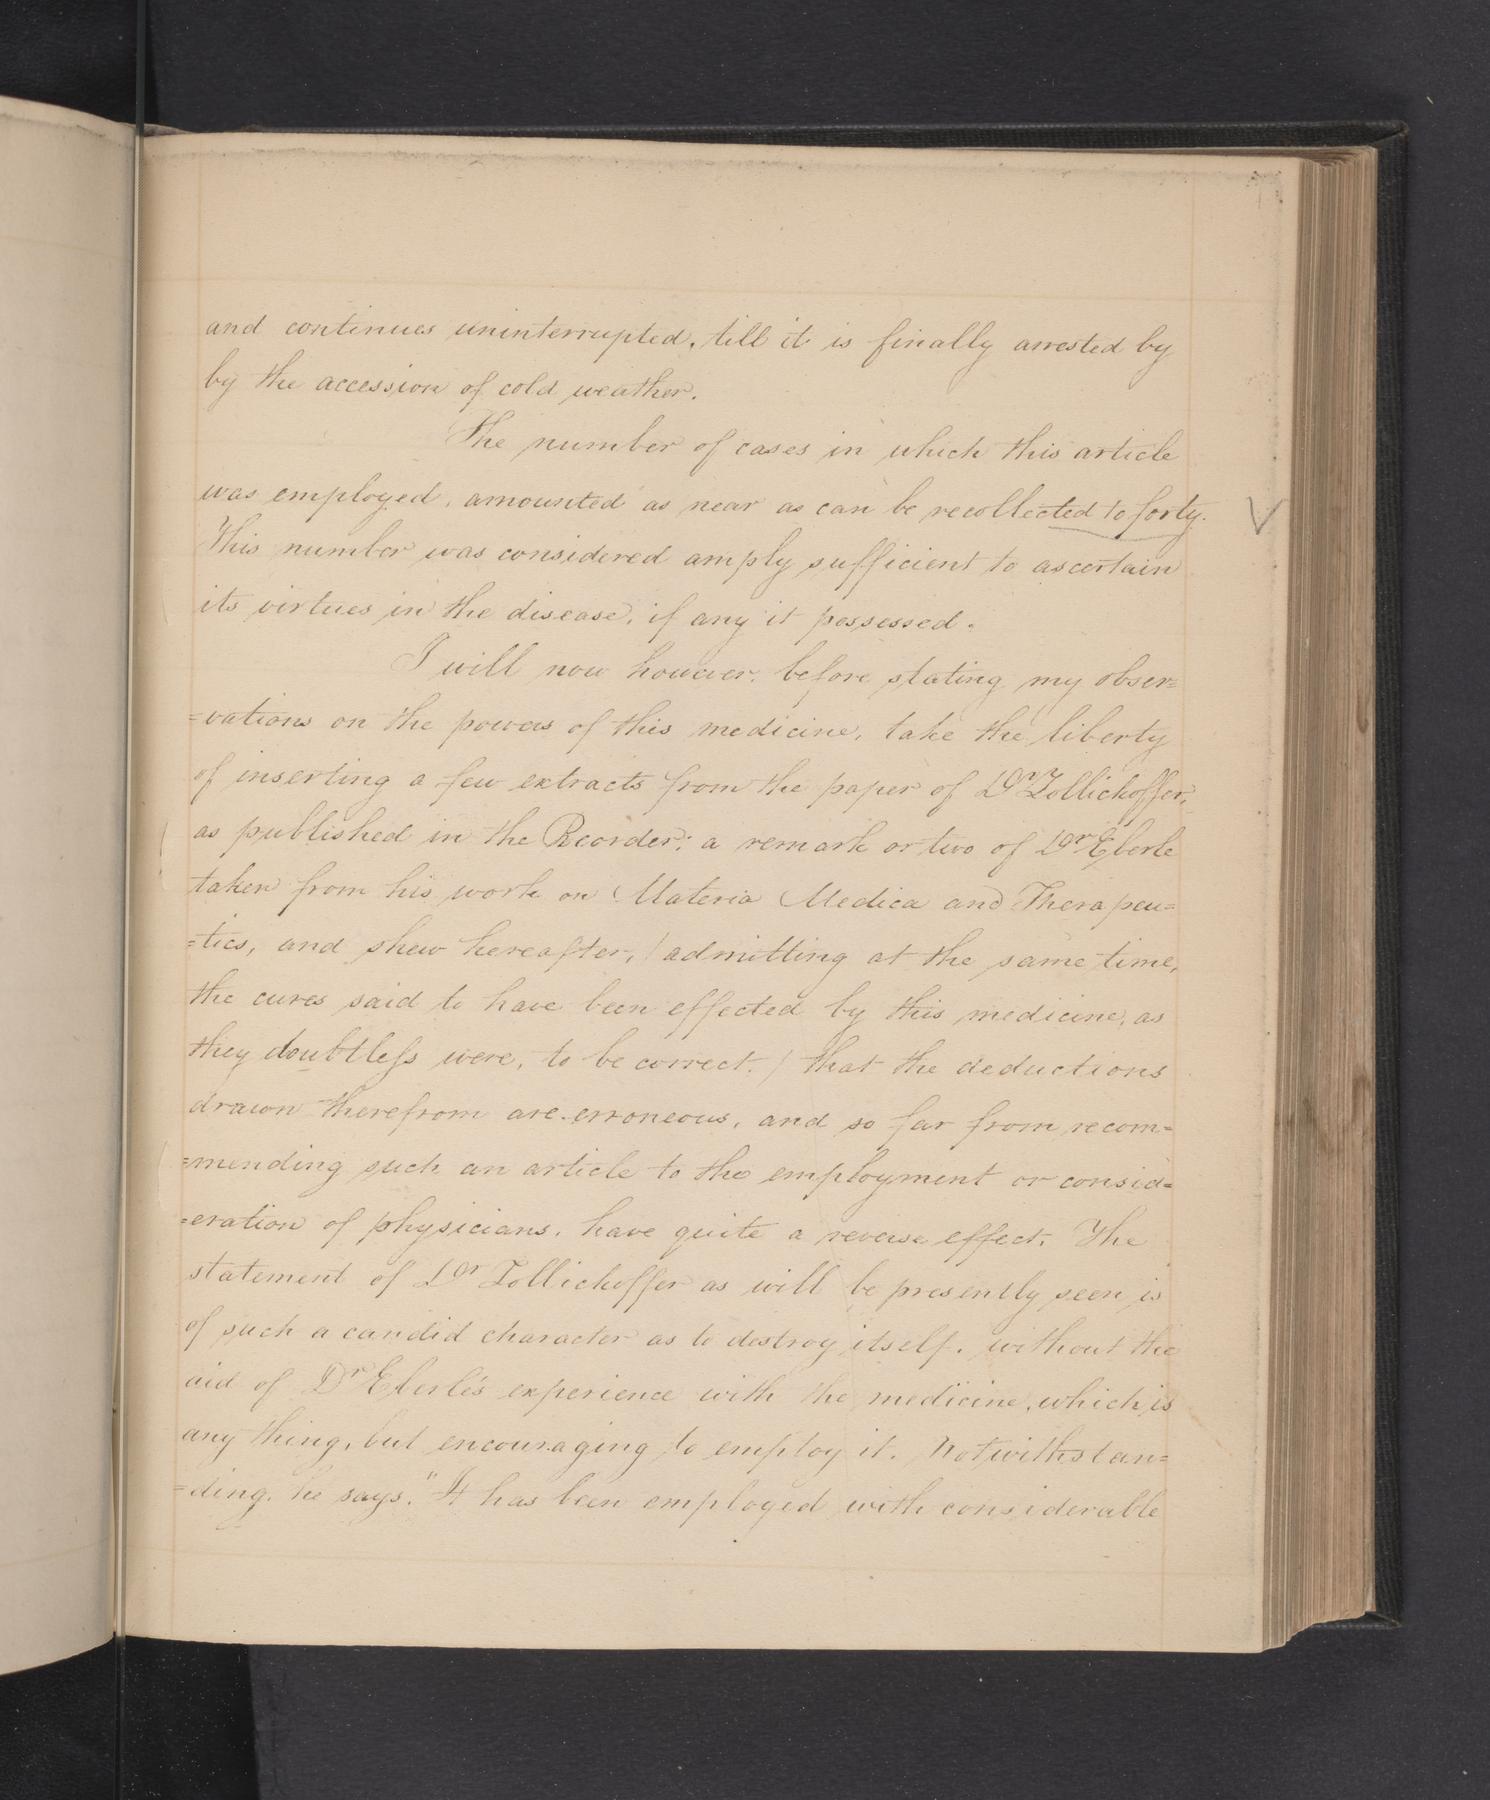 and continues uninterrupted, till it is finally arrested by
by the accession of cold weather.
The number of cases in which this article
was employed, amounted as near as can be recollected to forty. V
This number was considered amply sufficient to ascertain
its virtues in the disease, if any it possessed.
I will now however, before stating my obser=
=vations on the powers of this medicine, take the liberty
of inserting a few extracts from the paper of Dr Zollichoffer,
as published in the Recorder; a remark or two of Dr Eberle
taken from his work on Materia Medica and Therapeu=
=tics, and shew hereafter, (admitting at the same time,
the cures said to have been effected by this medicine, as
they doubtless were, to be correct.) that the deductions
drawn therefrom are erroneous, and so far from recom=
=mending such an article to the employment or consid=
=eration of physicians, have quite a reverse effect. The
statement of Dr Zollichoffer as will be presently seen is
of such a candid character as to destroy itself, without the
aid of Dr Eberle's experience with the medicine, which is
any thing, but encouraging to employ it. Notwithstan=
=ding, he says, "It has been employed with considerable